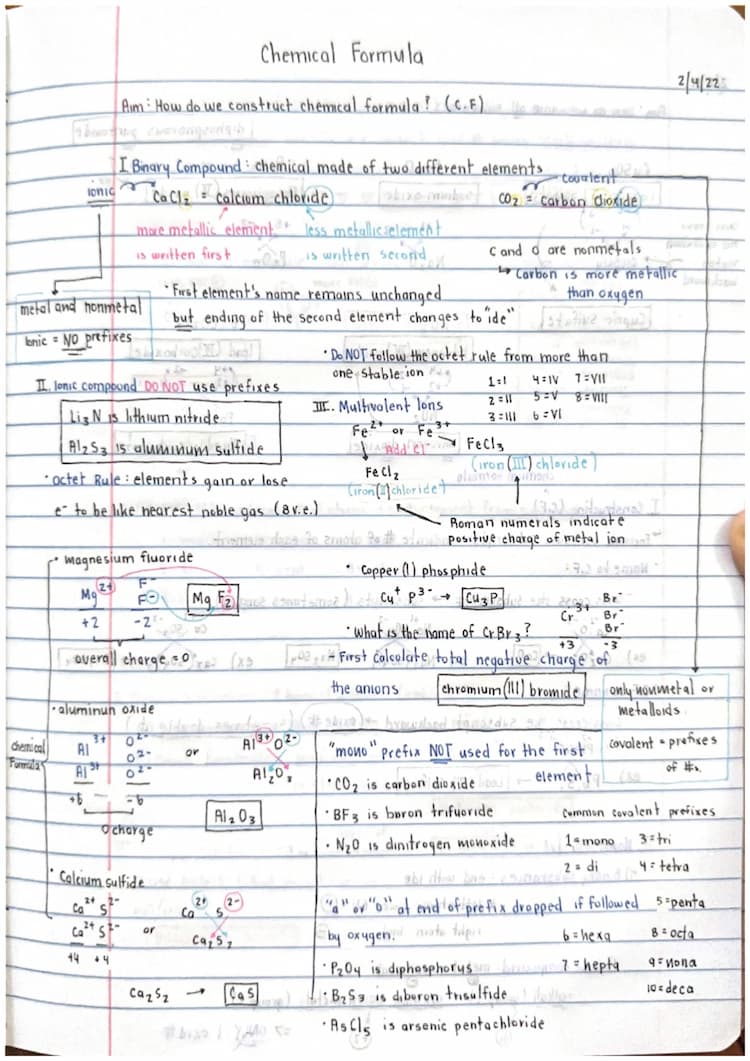 Chemical Formula
2/4/22
Aim: How do we construct chemical formula? (C.F)
I Binary Compound: chemical made of two different elements
ionic
CaCl₂ = calcium chloride
covalent
CO₂ = carbon dioxide
more metallic element
is written first
less metallic element
is written second
C and O are nonmetals
↳ Carbon is more metallic
than oxygen
metal and nonmetal
Ionic = NO prefixes
• First element's name remains unchanged
but ending of the second element changes to "ide"
• Do NOT follow the octet rule from more than
one stable ion
II. Ionic compound DO NOT use prefixes
Li₃N is lithium nitride
Al₂S₃ is aluminum sulfide
• Octet Rule: elements gain or lose
e⁻ to be like nearest noble gas (8 v.e.)
1=I 4=IV 7=VII
2=II 5=V 8=VIII
3=III 6=VI
III. Multivalent Ions
Fe²⁺ or Fe³⁺
Add Cl⁻
FeCl₃
FeCl₂
(iron(III) chloride)
(iron(II) chloride)
Roman numerals indicate
positive charge of metal ion
• magnesium fluoride
Mg²⁺ F⁻
F⁻
MgF₂
+2 -2
overall charge = 0
• Copper(I) phosphide
Cu⁺ P³⁻ → Cu₃P
• What is the name of CrBr₃?
Cr³⁺ Br⁻
Br⁻
Br⁻
+3 -3
- First calculate total negative charge of
the anions
chromium(III) bromide
only nonmetal or
metalloids
covalent = prefixes
of #s.
• aluminun oxide
chemical
Formula
Al³⁺ O²⁻
O²⁻
Al³⁺ O²⁻
or
Al³⁺ O²⁻
Al₂O₃
+6 -6
0 charge
Al₂O₃
"mono" prefix NOT used for the first
element
• CO₂ is carbon dioxide
• BF₃ is boron trifuoride
• N₂O is dinitrogen monoxide
common covalent prefixes
1=mono 3=tri
2=di 4=tetra
5=penta
6=hexa 8=octa
7=hepta 9=nona
10=deca
• Calcium sulfide
Ca²⁺ S²⁻
Ca²⁺ S²⁻
or
Ca²⁺ S²⁻
Ca₂S₂
+4 +4
Ca₂S₂ → CaS
"a" or "o" at end of prefix dropped if followed
by oxygen.
• P₂O₄ is diphosphorus
• B₂S₃ is diboron trisulfide
• AsCl₅ is arsenic pentachloride